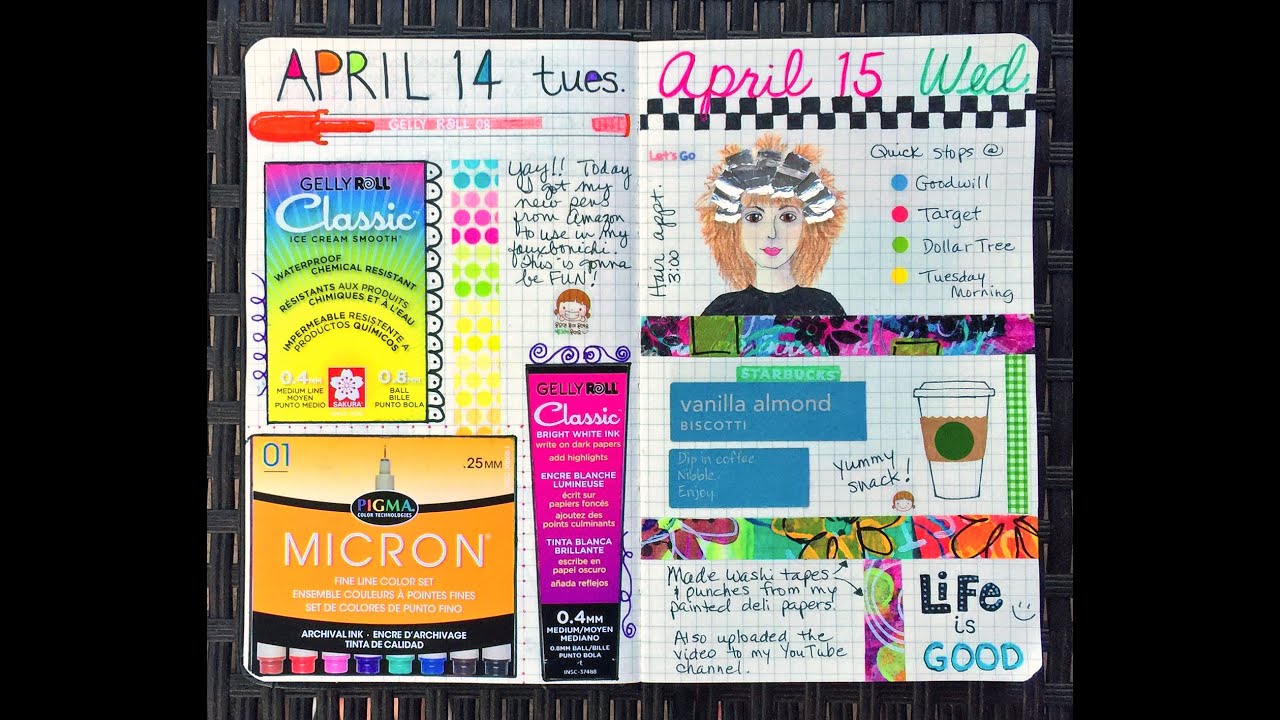 APRIL 14 tues.
GELLY ROLL 08
GELLY ROLL
Classic™
ICE CREAM SMOOTH™
WATERPROOF
CHEMICAL RESISTANT
RÉSISTANTS AUX PRODUITS
CHIMIQUES ET À L'EAU
IMPERMEABLE RESISTENTE A
PRODUCTOS QUÍMICOS
0.4MM
MEDIUM LINE
MOYEN
PUNTO MEDIO
SAKURA
0.8MM
BALL
BILLE
PUNTO BOLA
Today
I got my
new pens
from Amazon
to use in my
This is gonna
be FUN!
01
.25MM
PIGMA
COLOR TECHNOLOGIES
MICRON®
FINE LINE COLOR SET
ENSEMBLE COULEURS À POINTES FINES
SET DE COLORES DE PUNTO FINO
ARCHIVAL INK · ENCRE D'ARCHIVAGE
TINTA DE CALIDAD
GELLY ROLL
Classic™
BRIGHT WHITE INK
write on dark papers
add highlights
ENCRE BLANCHE
LUMINEUSE
écrit sur
papiers foncés
ajoutez des
points culminants
TINTA BLANCA
BRILLANTE
escribe en
papel oscuro
añada reflejos
0.4MM
MEDIUM/MOYEN
MEDIANO
0.8MM BALL/BILLE
PUNTO BOLA
INSC-37488
April 15 Wed.
Let's Go
Hair appt
3:00
Quick stops @
Goodwill
Target
Dollar Tree
Tuesday
Morning
STARBUCKS
vanilla almond
BISCOTTI
Dip in coffee.
Nibble.
Enjoy.
yummy
snack!
Made washi tapes
& punches from my
painted deli papers!
Also uploaded the
video to my YouTube
channel.
LiFe
is
GOOD